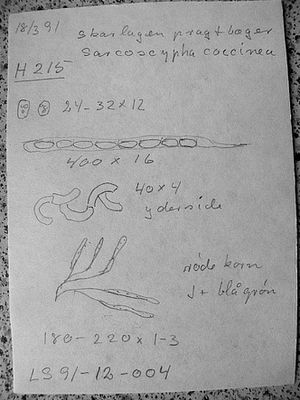 18/3 91
skarlagen pragtbæger
Sarcoscypha coccinea
H 215
24-32×12
400 × 16
40×4
yderside
røde korn
J+ blågrøn
180-220×1-3
LS 91-12-004